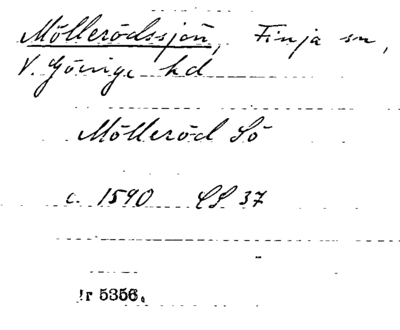 Möllerödssjön, Finja sn,
V. Göinge hd
Mölleröd Sö
c. 1590 CS 37
r 5356.